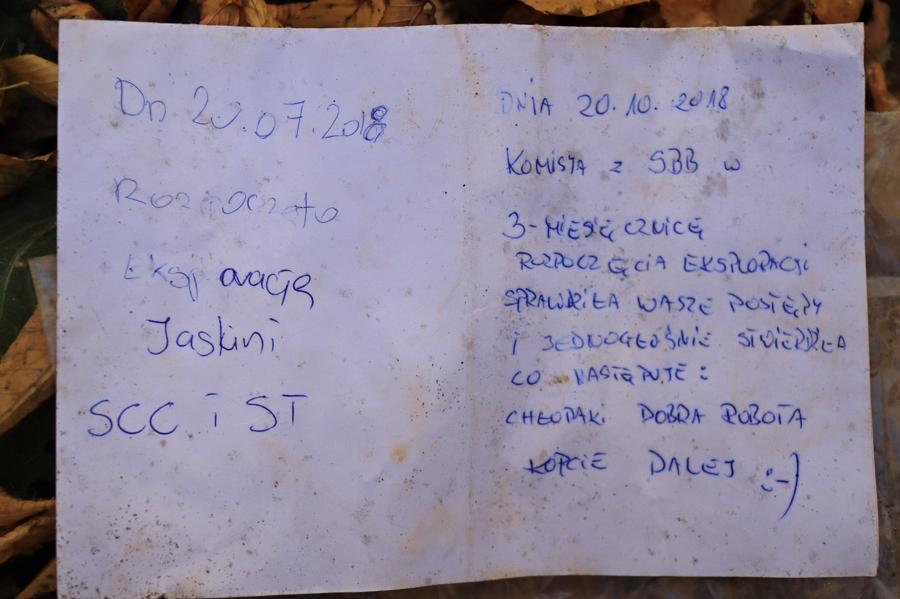 Dn 20.07.2018
Rozpoczęto
Eksplorację
Jaskini
SCC i ST
DNIA 20.10.2018
KOMISJA z SBB w
3-MIESIĘCZNICĘ
ROZPOCZĘCIA EKSPLORACJI
SPRAWDZIŁA WASZE POSTĘPY
I JEDNOGŁOŚNIE STWIERDZIŁA
CO NASTĘPUJE :
CHŁOPAKI DOBRA ROBOTA
KOPCIE DALEJ :-)